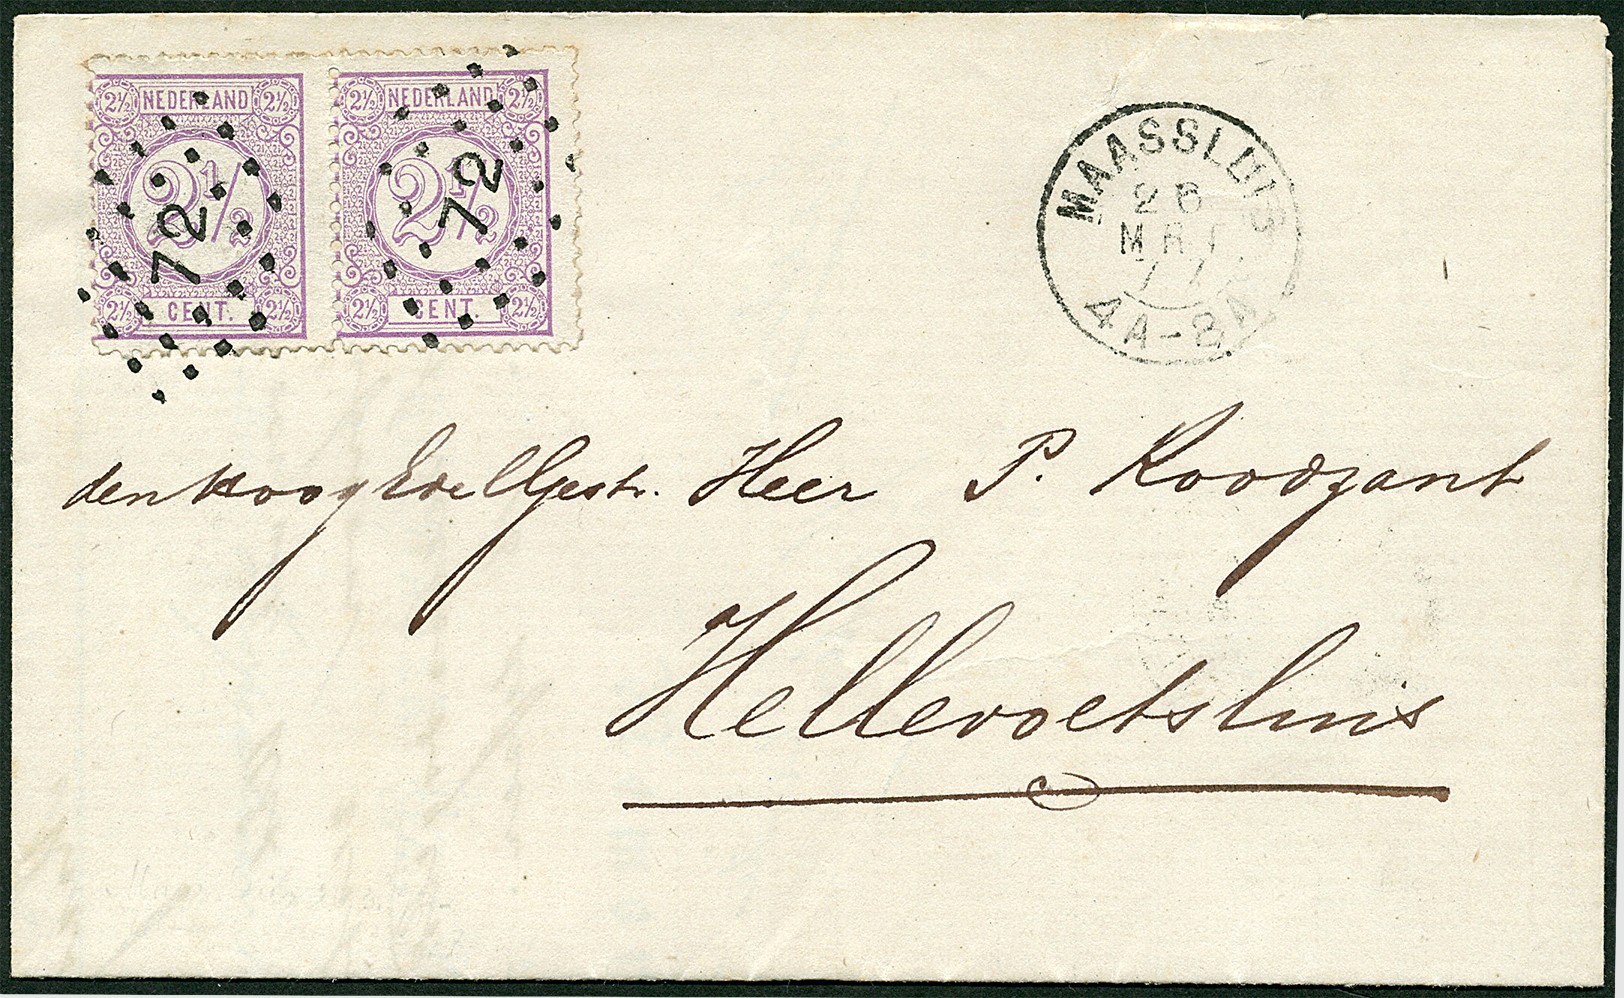 2½ NEDERLAND 2½
2½
2½ CENT. 2½
72
2½ NEDERLAND 2½
2½
2½ CENT. 2½
72
MAASSLUIS
26
MRT
77
4A-8A
den HoogEdelGestr. Heer P. Roodzant
Hellevoetsluis